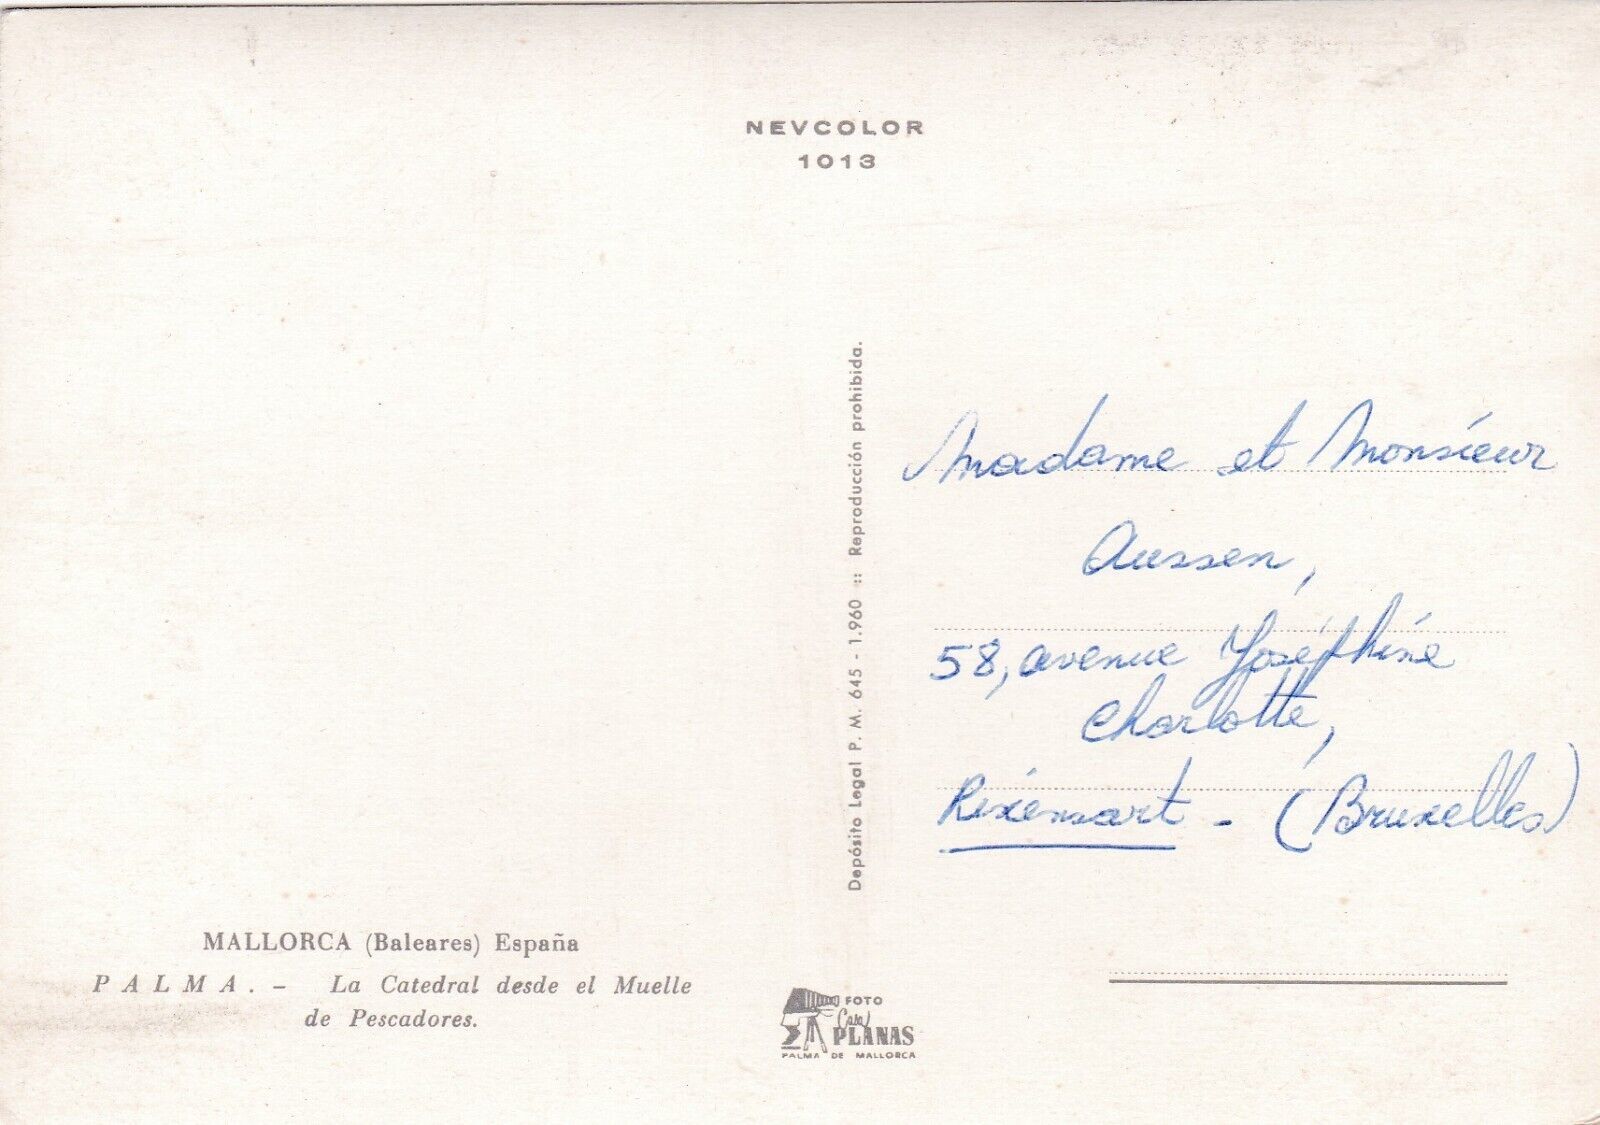 NEVCOLOR
1013
Depósito Legal P. M. 645 - 1.960 :: Reproducción prohibida.
Madame et Monsieur
Aussen,
58, avenue Joséphine
Charlotte,
Rixensart - (Bruxelles)
MALLORCA (Baleares) España
PALMA. - La Catedral desde el Muelle
de Pescadores.
FOTO
Casa
PLANAS
PALMA DE MALLORCA